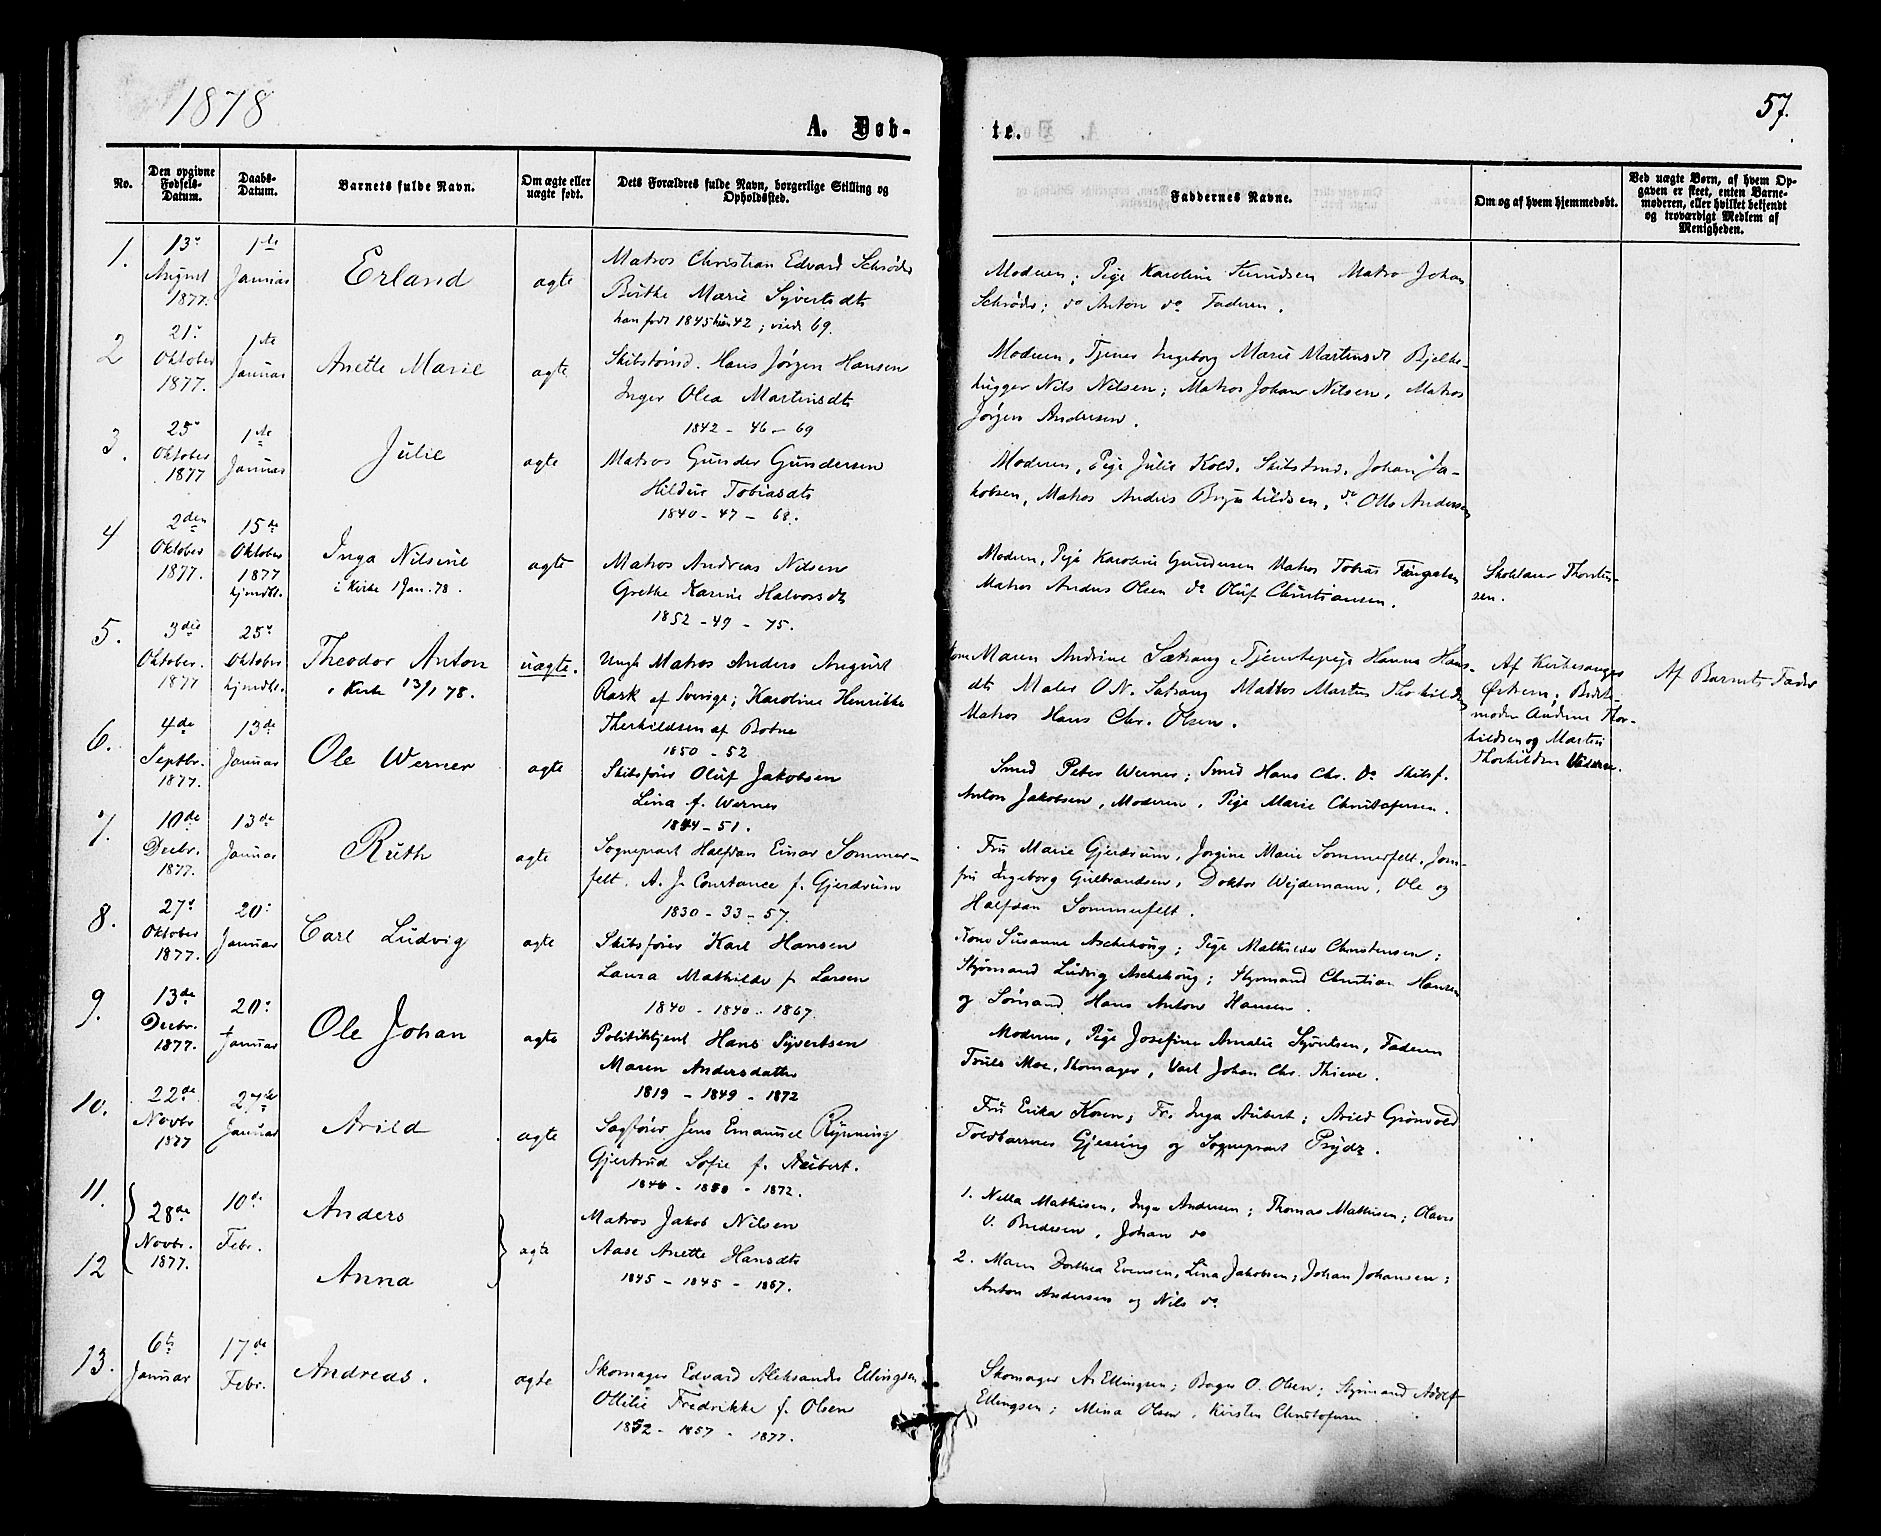 1878
57.
A. Døb-
te.
No.
Den opgivne Fødsels-Datum.
Daabs-Datum.
Barnets fulde Navn.
Om ægte eller uægte født.
Dets Forældres fulde Navn, borgerlige Stilling og Opholdssted.
Faddernes Navne.
Om og af hvem hjemmedøbt.
Ved uægte Børn, af hvem Opgaven er skeet, enten Barnemoderen, eller hvilket bekjendt og troværdigt Medlem af Menigheden.
1.
13de August 1877.
1ste Januar
Erland
ægte
Matros Christian Edvard Schrøder
Berthe Marie Syvertsdt
han født 1845 hun 42; viede 69.
Moderen; Pige Karoline Knudsen Matro Johan
Schrøder; do Anton do Faderen.
2
21. Oktober 1877.
1ste Januar
Anette Marie
ægte
Skibstømd. Hans Jørgen Hansen
Inger Olea Martinsdt
1842 - 46 - 69
Moderen, Tjenes Ingeborg Marie Martinsdt Bjelke-
hugger Nils Nilsen; Matros Johan Nilsen, Matros
Jørgen Andersen.
3.
25. Oktober 1877
1ste Januar
Julie
ægte
Matros Gunder Gundersen
Hildur Tobiasdt
1840 - 47 - 68.
Moderen, Pige Julie Kold. Skibstmd. Johan Ja-
kobsen, Matros Anders Brynhildsen, do Olls Andersen
4
2den Oktober 1877.
15de Oktober 1877 hjmdbt.
Inga Nilsine
i Kirke 1 Jan. 78.
ægte
Matros Andreas Nilsen
Grethe Karine Halvorsdt
1852 - 49 - 75.
Moderen, Pige Karoline Gundersen Matros Tobias
Matros Anders Olsen do Oluf Christiansen.
Skolelærer Thorsten-
sen.
5.
3die Oktober. 1877
25. Oktober hjmdbt.
Theodor Anton
i Kirke 13/1 78.
uægte.
Ungk Matros Anders August
Rask af Sverige; Karoline Henrikke
Thorkildsen af
1850 - 52
Kone Maren Andrine Sætrang, Tjenestepige Hanna Hans-
dt Maler O. N. Sætrang Matros Martin Thorkildsen
Matros Hans Chr. Olsen.
Af Kirkesanger
Østrem; Beste-
moder Andrine Thor-
kildsen og Martin
Thorkildsen Vidner.
Af Barnets Fader
6.
4de Septbr. 1877.
13de Januar
Ole Werner
ægte
Skibsfører Oluf Jakobsen
Lina f. Werner
1844 - 51.
Smed Peter Werner; Smed Hans Chr. do Skibsf.
Anton Jakobsen, Moderen, Pige Marie Christofersen.
7.
10de Decbr. 1877.
13de Januar
Ruth
ægte
Sogneprest Halfdan Einar Sommer-
felt. A. J. Constance f. Gjerdrum
1830 - 33 - 57.
Fru Marie Gjerdrum, Jorgine Marie Sommerfelt, Jom-
fru Ingeborg Gulbrandsen, Doktor Wejdemann, Ole og
Halfdan Sommerfelt.
8.
27. Oktober 1877.
20. Januar
Carl Ludvig
ægte
Skibsfører Karl Hansen
Laura Mathilde f Larsen
1840 - 1840 - 1867.
Kone Susanne Aschehoug; Pige Mathilde Christensen;
Styrmand Ludvig Aschehoug; Styrmand Christian Hansen
og Sømand Hans Anton Hansen.
9.
13de Decbr. 1877.
20. Januar
Ole Johan
ægte
Politibtjent Hans Syvertsen
Maren Andersdatter
1819 - 1849 - 1872
Moderen, Pige Josefine Amalie Syvertsen, Faderen
Truls Moe, Skomager, Johan Chr. Thieve.
10.
22de Novbr 1877
27de Januar
Arild
ægte
Sagfører Jens Emanuel Rynning
Gjertrud Sofie f. Aubert.
1844 - 1850 - 1872.
Fru Erika Koren; Fr. Inga Aubert; Arild Grønvold
Toldkasserer Gjessing og Sogneprest Prydz.
11.
28de Novbr. 1877.
10de Febr.
Anders
ægte
Matros Jakob Nilsen
Aase Anette Hansdt
1845 - 1845 - 1867.
1. Nella Mathisen, Inga Andersen; Thomas Mathisen; Olaves
O. Bredesen, Johan do
12
Anna
2. Maren Dorthea Evensen, Lina Jakobsen; Johan Johansen;
Anton Andersen og Nils do
13.
6te Januar
17de Febr.
Andreas.
ægte
Skomager Edvard Aleksander Ellingsen
Ottilie Fredrikke f. Olsen
1852 - 1857 - 1877.
Skomager A. Ellingsen; Bager O. Olsen; Styrmand Adolf
Ellingsen; Mina Olsen, Kirsten Christofersen